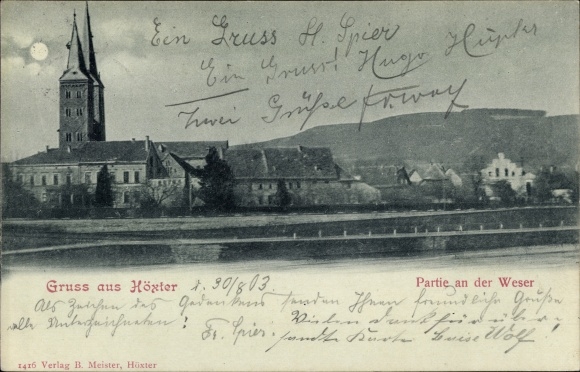 Ein Gruss H. Spier
Ein Gruss! Hugo Hupfer
Zwei Grüße
Gruss aus Höxter
30/8 03
Partie an der Weser
Als Zeichen des Gedenkens senden Ihnen freundliche Grüße
alle Unterzeichneten! Vielen Dank für über-
Fr. Spier. sandte Karte Luise Wolf
1416 Verlag B. Meister, Höxter